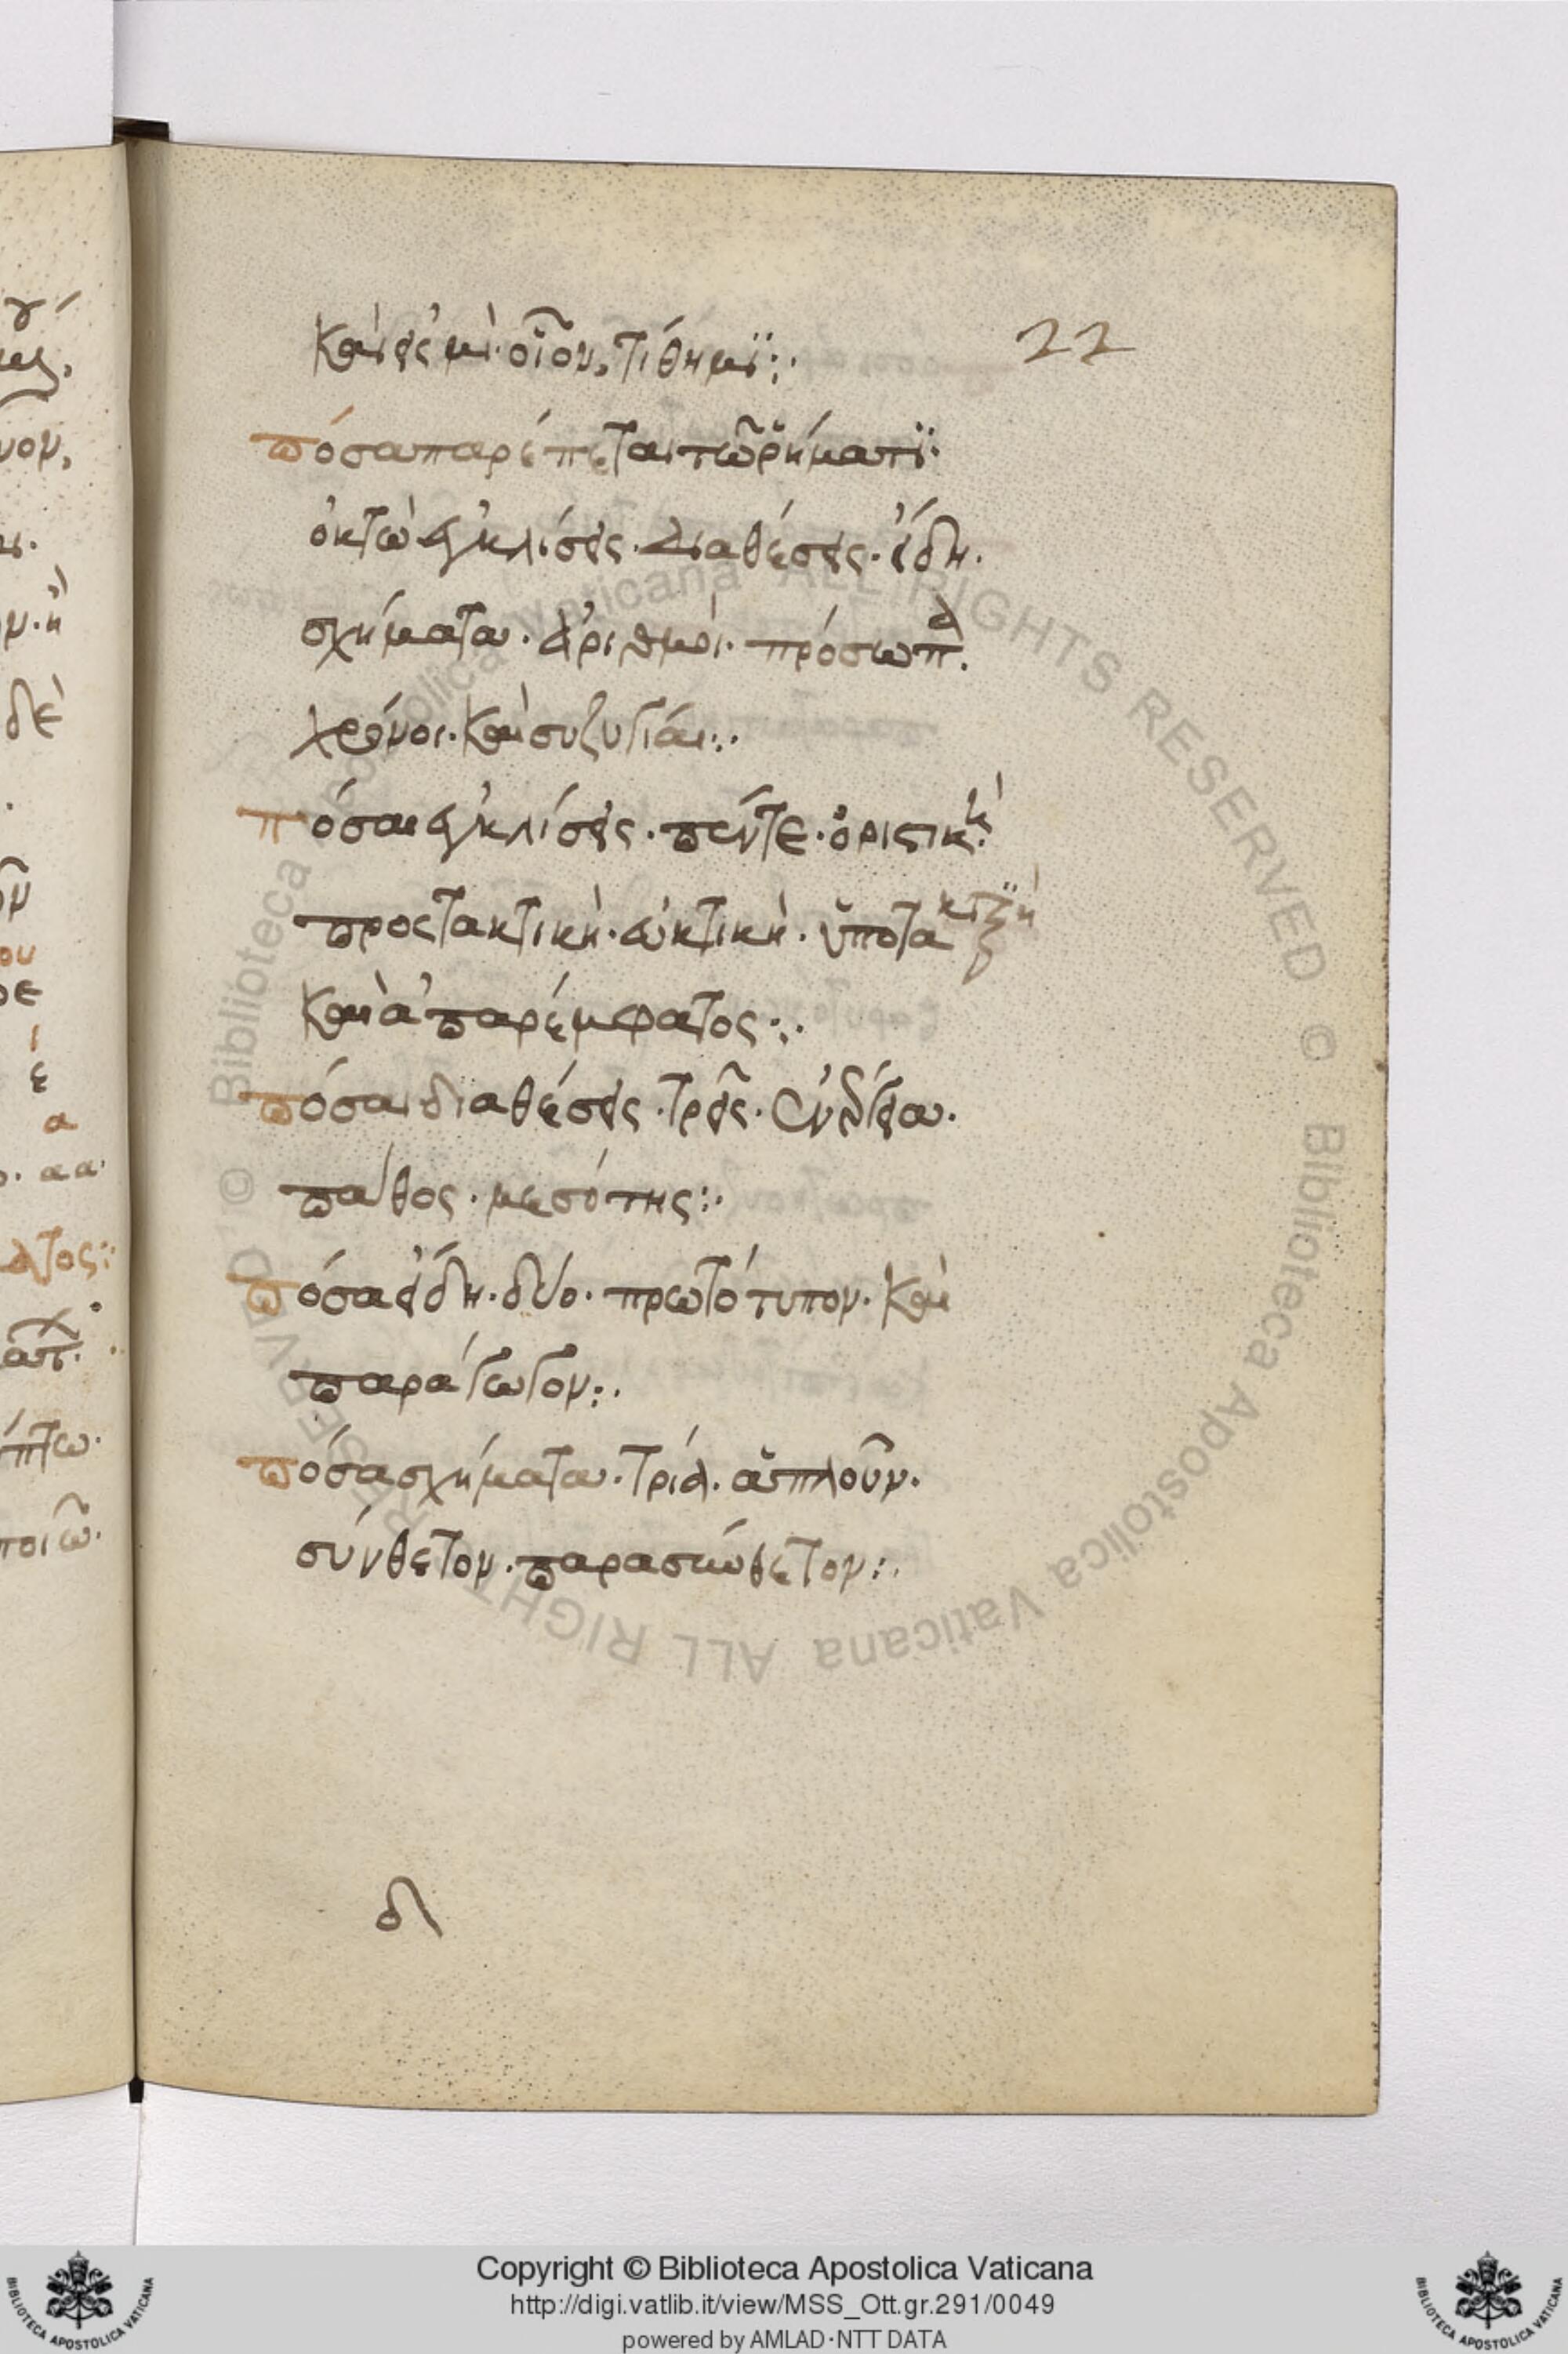 22
καὶ εἰς μι· οἷον, τίθημϊ:·
πόσα παρέπεται τῶ ῥήματϊ·
ὀκτὼ ἐγκλίσεις· διαθέσεις· εἴδη·
σχήματα· ἀριθμοὶ· πρόσωπα·
χρόνοι· καὶ συζυγίαι:·
πόσαι ἐγκλίσεις· πέντε· ὁριστικὴ·
προστακτικὴ· εὐκτικὴ· ὑποτακτϊκὴ
καὶ ἀπαρέμφατος:·
πόσαι διαθέσεις· τρεῖς· ἐνέργεια·
πάθος· μεσότης:·
πόσα εἴδη· δύο· πρωτότυπον· καὶ
παράγωγον:·
πόσα σχήματα· τρία· ἁπλοῦν·
σύνθετον· παρασύνθετον:·
δ
γ
δὲ
ου
ε
α
αα·
ατος:
ποιῶ·
Biblioteca Apostolica Vaticana ALL RIGHTS RESERVED © Biblioteca Apostolica Vaticana ALL RIGHTS RESERVED ©
Copyright © Biblioteca Apostolica Vaticana
http://digi.vatlib.it/view/MSS_Ott.gr.291/0049
powered by AMLAD·NTT DATA
BIBLIOTECA APOSTOLICA VATICANA
BIBLIOTECA APOSTOLICA VATICANA